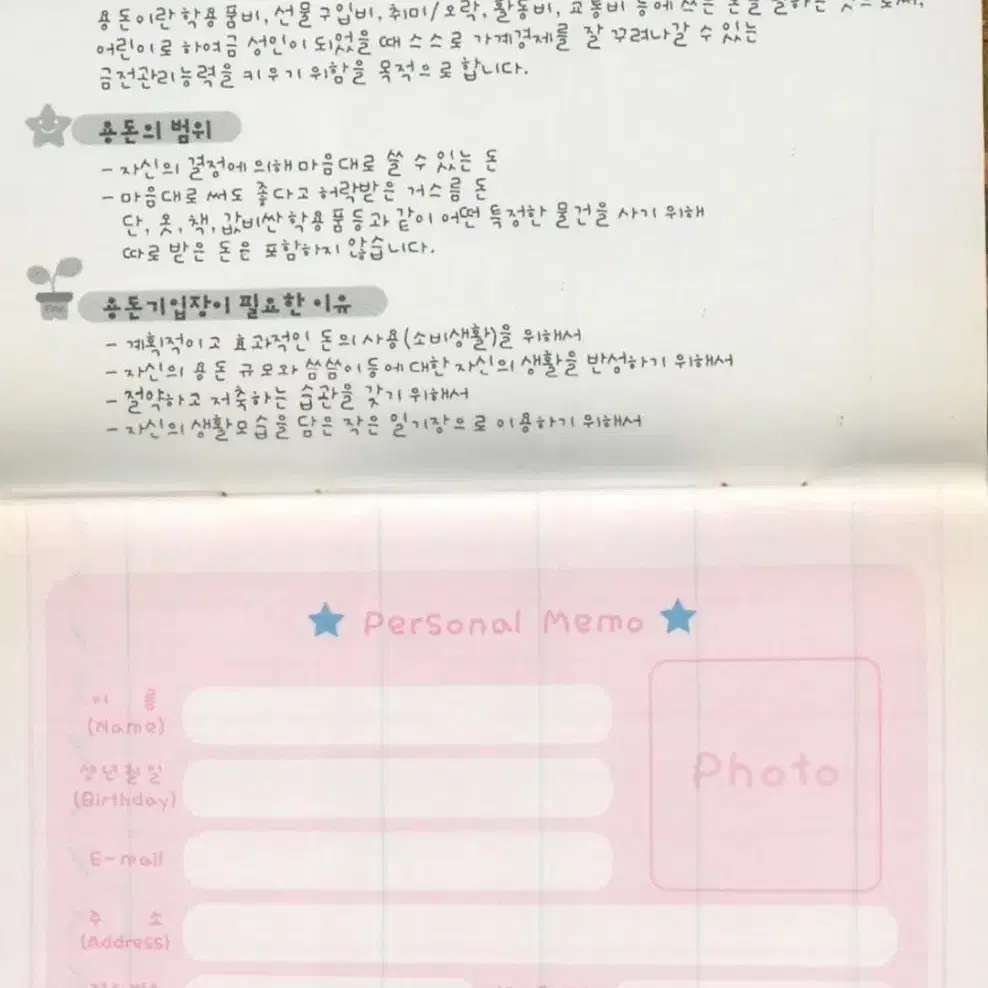 용돈이란 학용품비, 선물구입비, 취미/오락, 활동비, 교통비 등에 쓰는 돈을 말하는 것으로써,
어린이로 하여금 성인이 되었을 때 스스로 가계경제를 잘 꾸려나갈 수 있는
금전관리능력을 키우기 위함을 목적으로 합니다.
용돈의 범위
- 자신의 결정에 의해 마음대로 쓸 수 있는 돈
- 마음대로 써도 좋다고 허락받은 거스름 돈
단, 옷, 책, 값비싼 학용품 등과 같이 어떤 특정한 물건을 사기 위해
따로 받은 돈은 포함하지 않습니다.
용돈기입장이 필요한 이유
- 계획적이고 효과적인 돈의 사용(소비생활)을 위해서
- 자신의 용돈 규모와 씀씀이 등에 대한 자신의 생활을 반성하기 위해서
- 절약하고 저축하는 습관을 갖기 위해서
- 자신의 생활모습을 담은 작은 일기장으로 이용하기 위해서
Personal Memo
이 름
(Name)
Photo
생년월일
(Birthday)
E-mail
주 소
(Address)